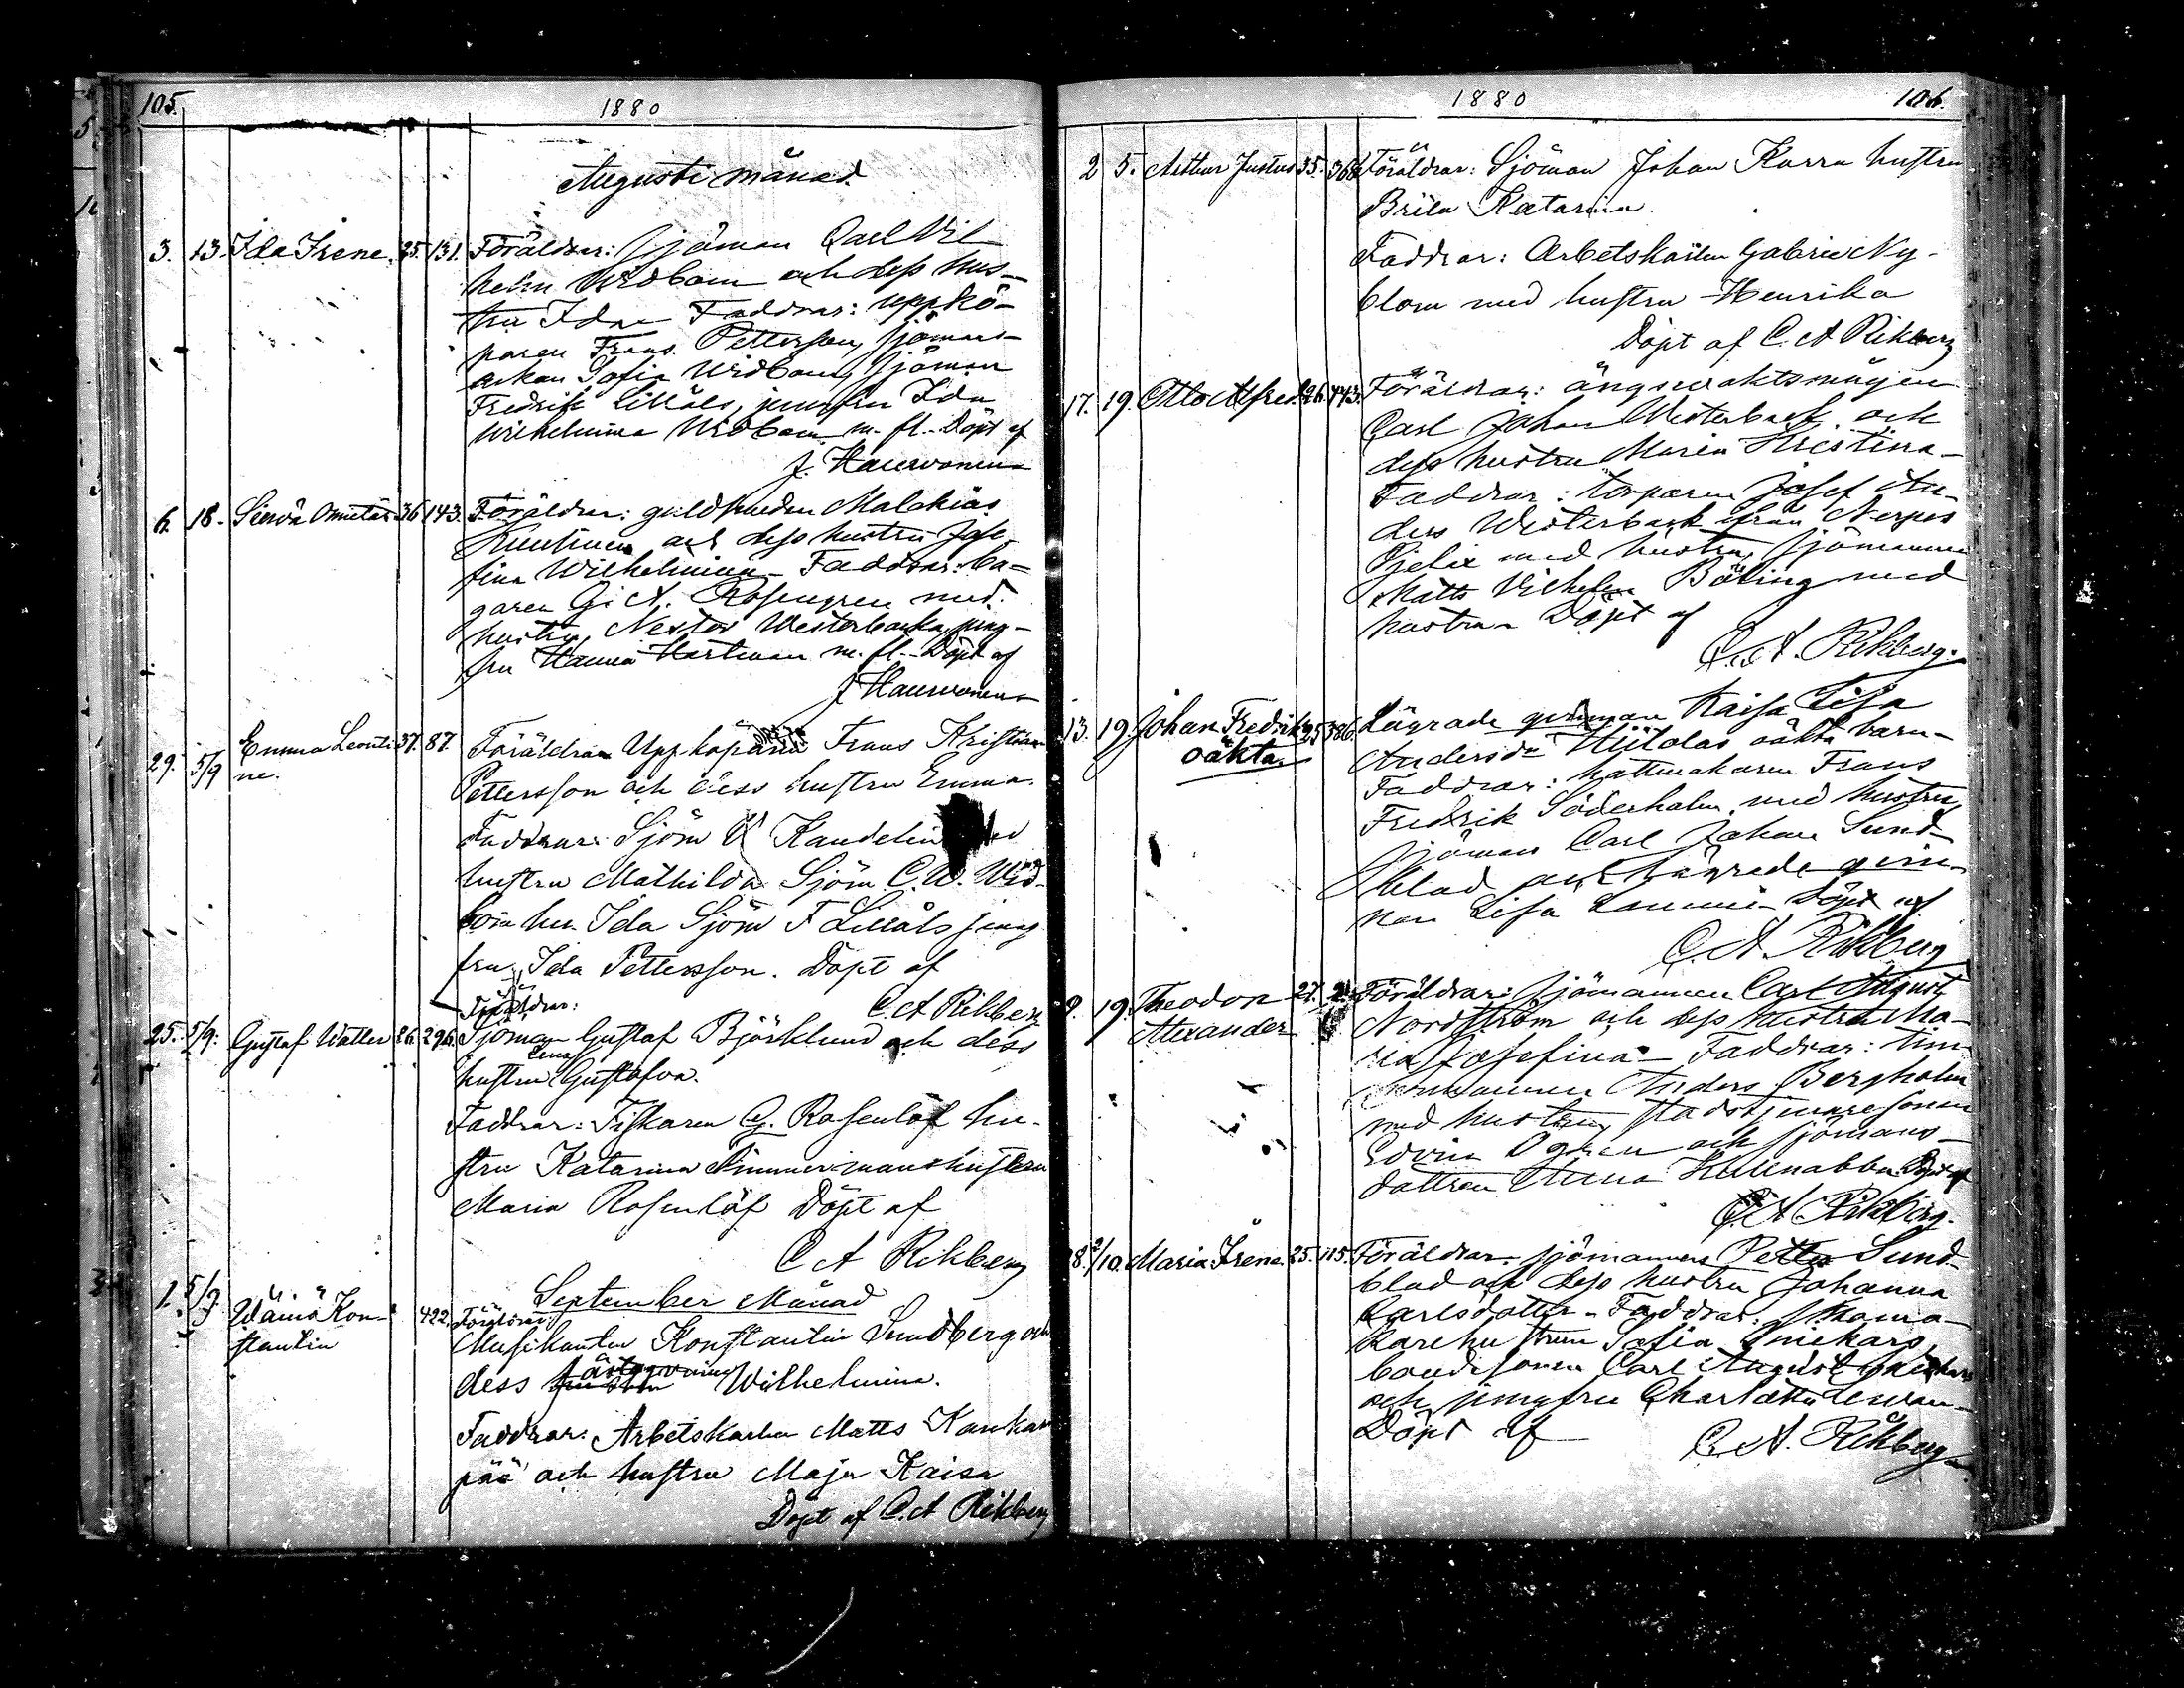 105.
1880
Augusti månad.
3. 13. Ida Irene. 25. 131. Föräldrar: sjöman Carl Vil-
helm Widbom och dess hus-
tru Ida Faddrar: uppkö-
paren Frans Petterson, sjömans-
enkan Sofia Widbom, sjöman
Fredrik Lillåls, jungfru Ida
Wilhelmina Widbom m. fl. Döpt af
J. Hauvonen
6. 18. 36 143. Föräldrar: guldsmeden Malakias
och dess hustru Jose-
fina Wilhelmina Faddrar: ba-
garen G. A. Rosengren med
hustru, Nestor Westerbacka, jung-
fru Hanna Hartman m. fl. Döpt af
J Hauvonen
29. 5/9 Emma Leonti- 37. 87. Föräldrar Uppköparen Frans Kristian
ne.
Pettersson och dess hustru Emma.
Faddrar: Sjöm K Kandelin
hustru Mathilda Sjöm C. W. Wid-
bom hu Ida Sjöm F Lillåls jung
fru Ida Pettersson. Döpt af
C. A Rikberg
Föräldrar:
25. 5/9. Gustaf Walter 26. 296. Sjöman Gustaf Björklund och dess
hustru Lena Gustafva.
Faddrar: Fiskaren G. Rosenlöf hu-
stru Katarina Timmermanshustrun
Maria Rosenlöf Döpt af
C A Rikberg
September Månad
1. 5/9 Wäinö Kon- 422. Föräldrar
stantin
Musikanten Konstantin Sundberg och
dess hustru Wilhelmina.
Faddrar: Arbetskarlen Matts Kankan
pää och hustru Maja Kaisa
Döpt af C. A Rikberg
1880
106.
2 5. Arthur Justus 35. 368 Föräldrar: Sjöman Johan Karra hustru
Brita Katarina.
Faddrar: Arbetskarlen Gabriel Ny-
blom med hustru Henrika
Döpt af C. A Rikberg
17. 19. Otto Alfred. 26. 443. Föräldrar: ängsvaktsmågen
Carl Johan Westerback och
dess hustru Maria Kristina
Faddrar: torparen Josef An-
ders Westerback från Nerpes
med hustru, sjömannen
Matts Vilhelm Böling med
hustru. Döpt af
C. A. Rikberg.
13. 19. Johan Fredrik 25 386. Lägrade qvinnan Kaisa Lisa
oäkta.
Andersdr Hiitolas oäkta barn
Faddrar: hattmakaren Frans
Fredrik Söderholm med hustru,
sjöman Carl Johan Sund-
blad och lägrade qvin-
nan Lisa Döpt af
C. A. Rikberg
9. 19. Theodor 27. Föräldrar: sjömannen Carl August
Alexander
Nordström och dess hustru Ma-
ria Josefina Faddrar: tim-
mermannen Anders Bergholm
med hustru, stadstjenaresonen
Edvin Ogren och sjömans-
dottren Anna Döpt af
C. A. Rikberg.
8. 3/10. Maria Irene. 25. 115. Föräldrar. sjömannen Petter Sund-
blad och dess hustru Johanna
Carlsdotter Faddrar: skoma-
karehustrun Sofia Smickars,
bondesonen Carl August
och jungfru Charlotta
Döpt af
C. A. Rikberg